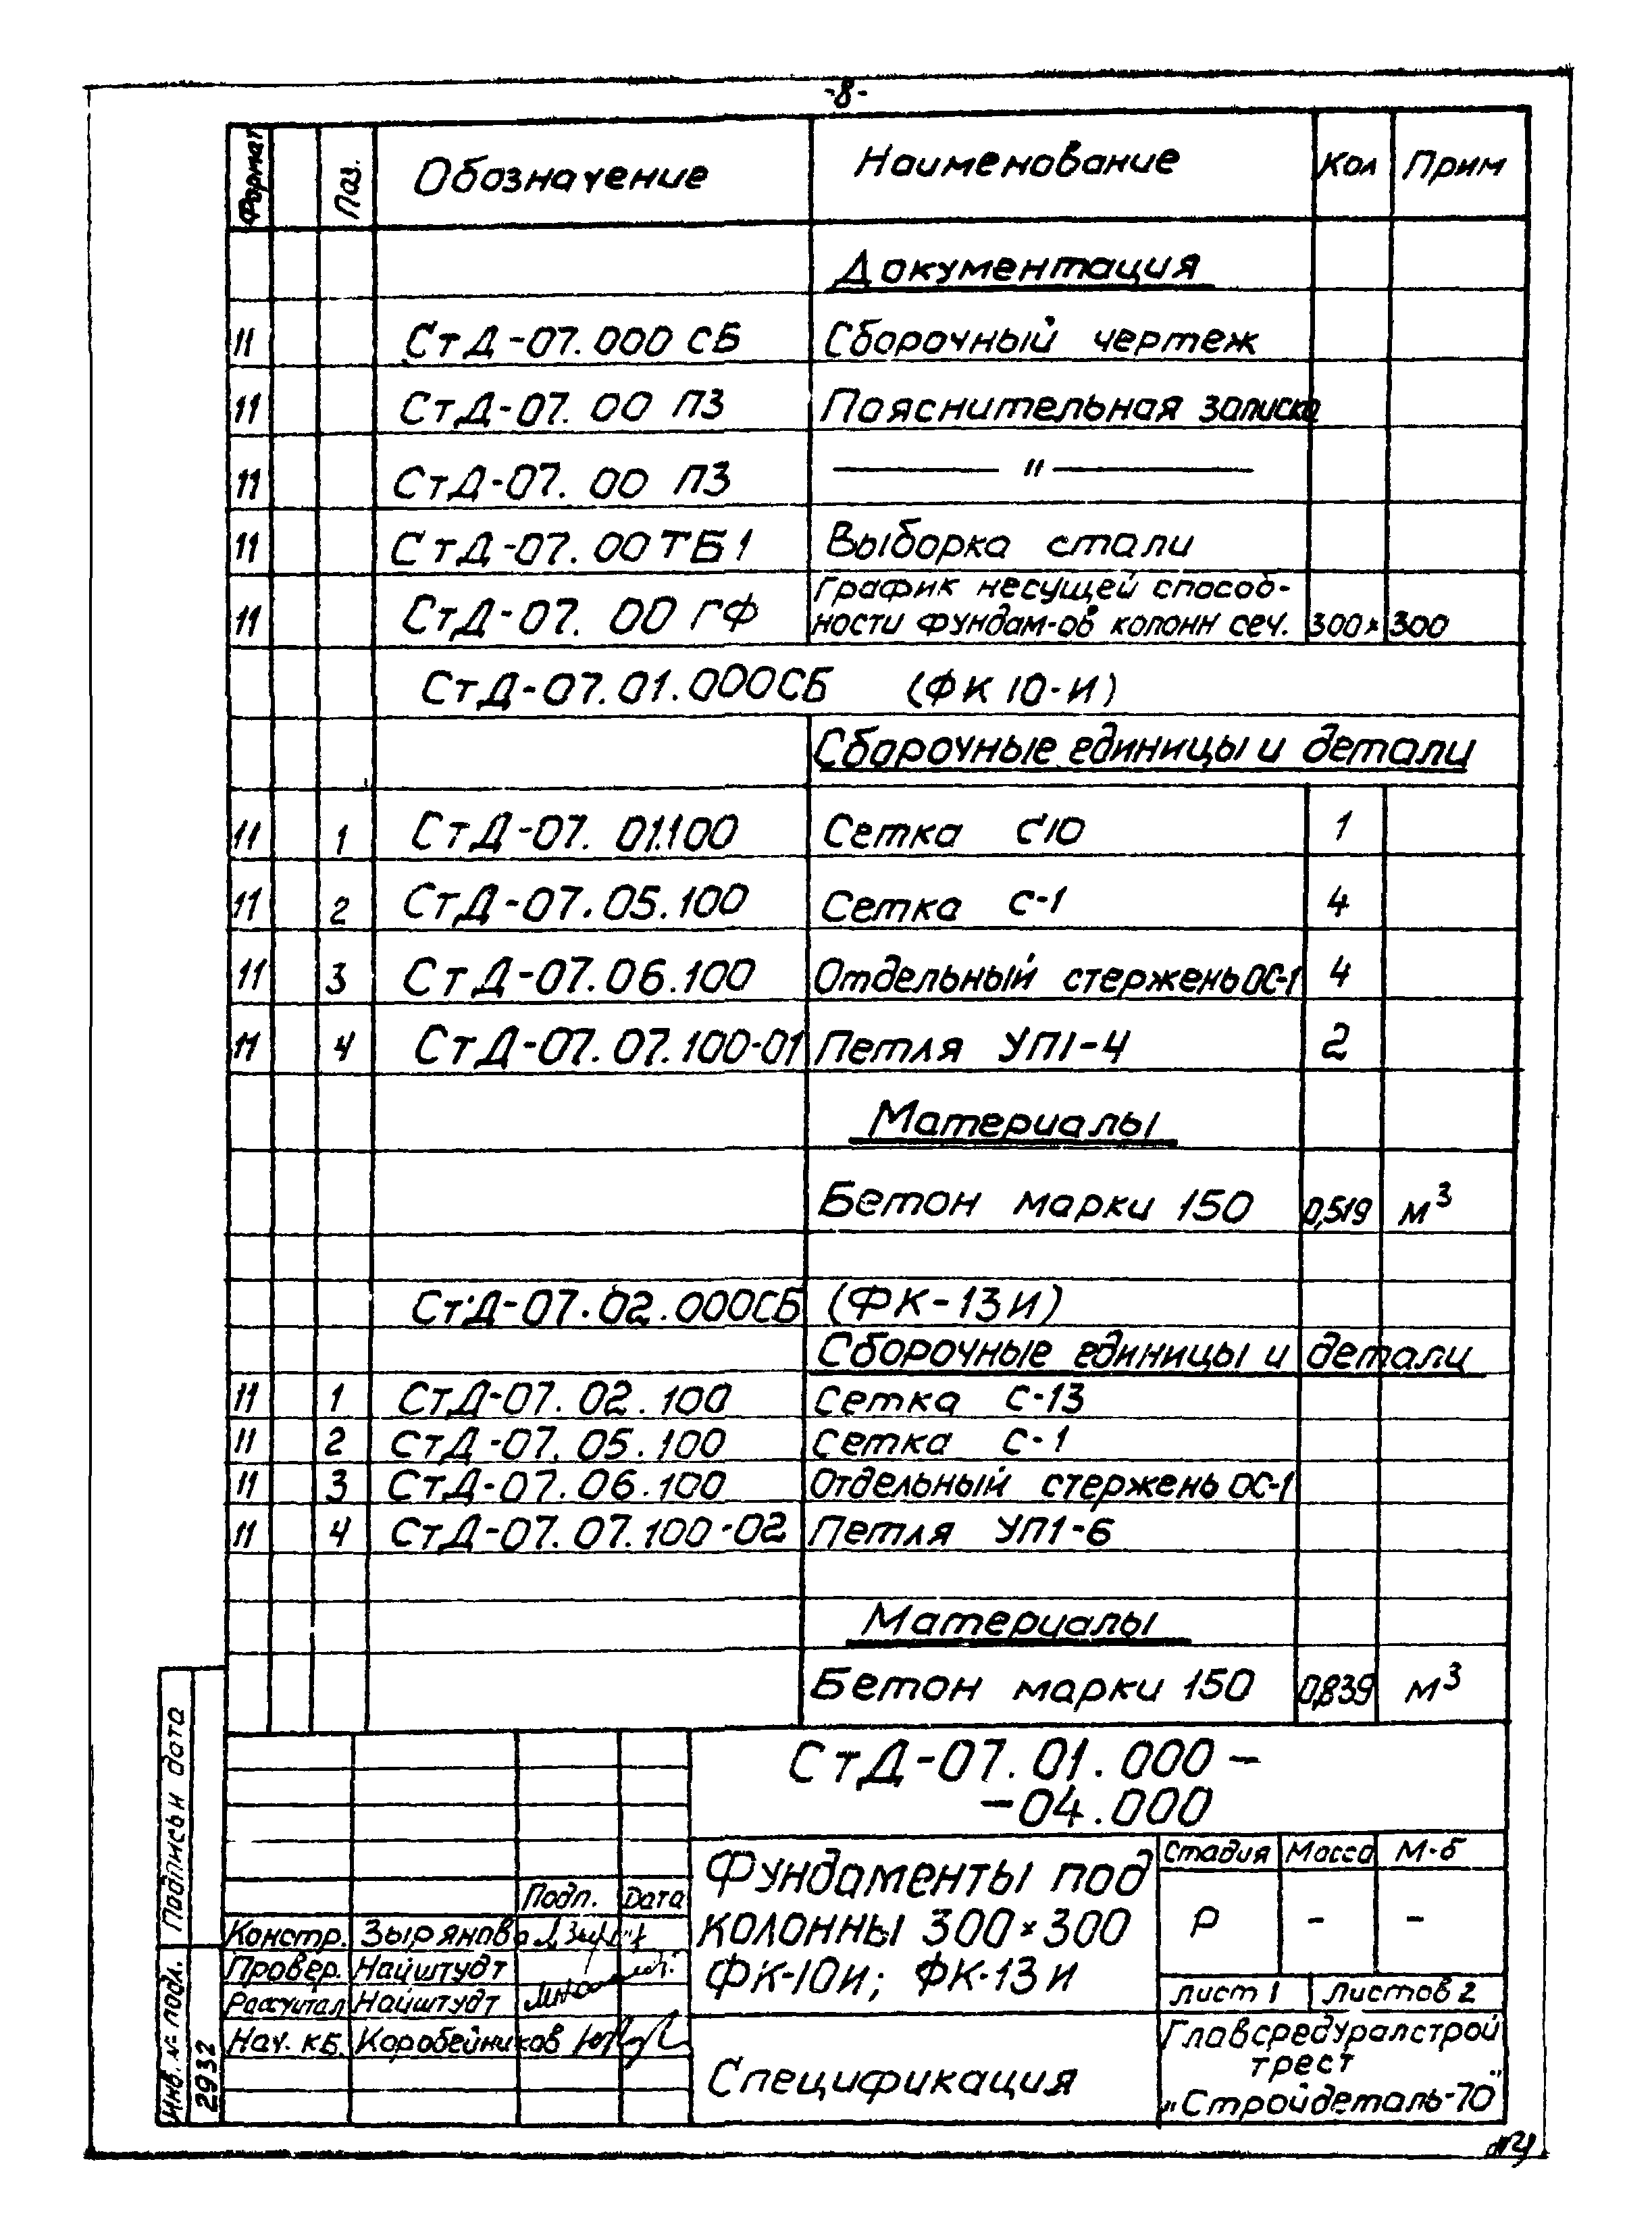 -8-
Формат Поз. Обозначение Наименование Кол Прим
Документация
11 СтД-07.000 СБ Сборочный чертеж
11 СтД-07. 00 ПЗ Пояснительная записка
11 СтД-07. 00 ПЗ — " —
11 СтД-07. 00 ТБ1 Выборка стали
График несущей способ-
11 СтД-07. 00 ГФ ности фундам-ов колонн сеч. 300×300
СтД-07.01.000СБ (ФК10-И)
Сборочные единицы и детали
11 1 СтД-07. 01.100 Сетка С10 1
11 2 СтД-07.05.100 Сетка С-1 4
11 3 СтД-07.06.100 Отдельный стержень ОС-1 4
11 4 СтД-07.07.100-01 Петля УП1-4 2
Материалы
Бетон марки 150 0,519 м³
СтД-07.02.000СБ (ФК-13И)
Сборочные единицы и детали
11 1 СтД-07.02.100 Сетка С-13
11 2 СтД-07.05.100 Сетка С-1
11 3 СтД-07.06.100 Отдельный стержень ОС-1
11 4 СтД-07.07.100-02 Петля УП1-6
Материалы
Бетон марки 150 0,839 м³
СтД-07.01.000-
-04.000
Фундаменты под
колонны 300×300
ФК-10И; ФК-13И
Стадия Масса М-б
Р - -
Лист 1 Листов 2
Подп. Дата
Констр. Зырянова
Провер. Найштудт
Рассчитал Найштудт
Нач. КБ. Коробейников
Спецификация
Главсредуралстрой
трест
„Стройдеталь-70"
Подпись и дата
Инв. № подл.
2932